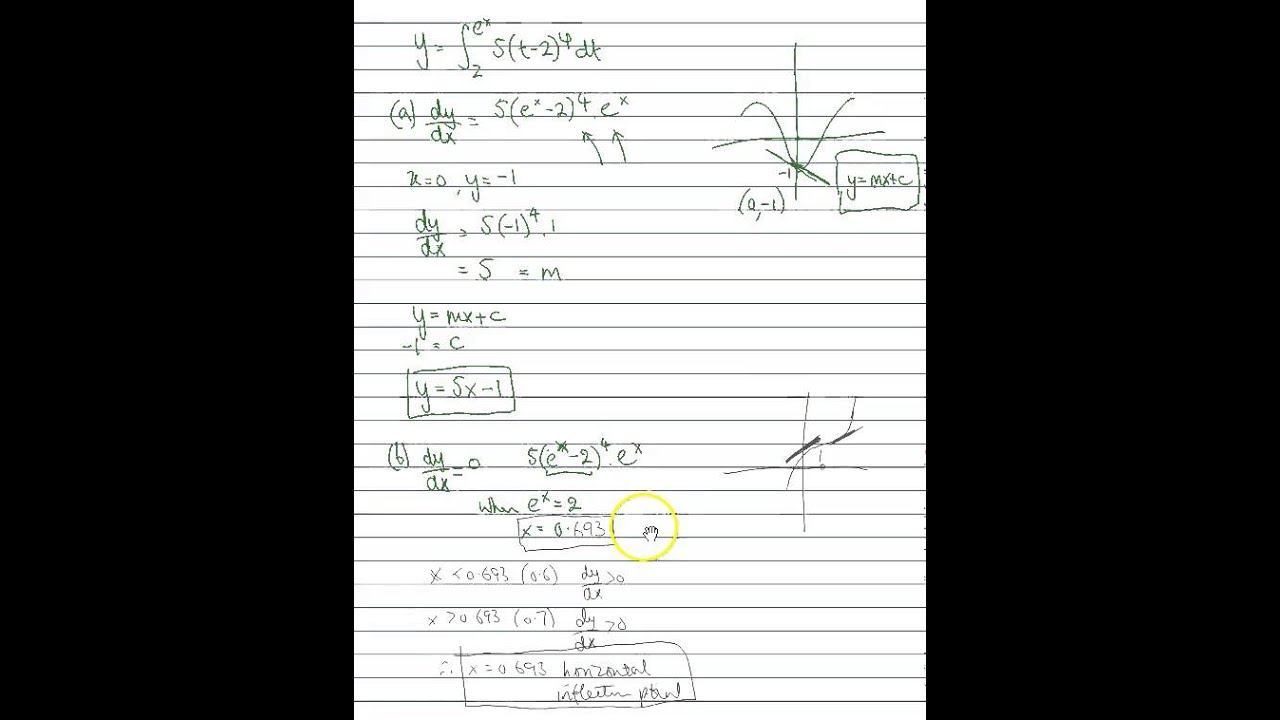 y = ∫₂^(eˣ) 5(t-2)⁴ dt
(a) dy/dx = 5(eˣ-2)⁴.eˣ
x=0, y=-1
-1
y=mx+c
(0,-1)
dy/dx = 5(-1)⁴.1
= 5 = m
y = mx+c
-1 = c
y = 5x-1
(b) dy/dx = 0 5(eˣ-2)⁴.eˣ
when eˣ = 2
x = 0.693
x < 0.693 (0.6) dy/dx > 0
x > 0.693 (0.7) dy/dx > 0
∴ x = 0.693 horizontal
inflection